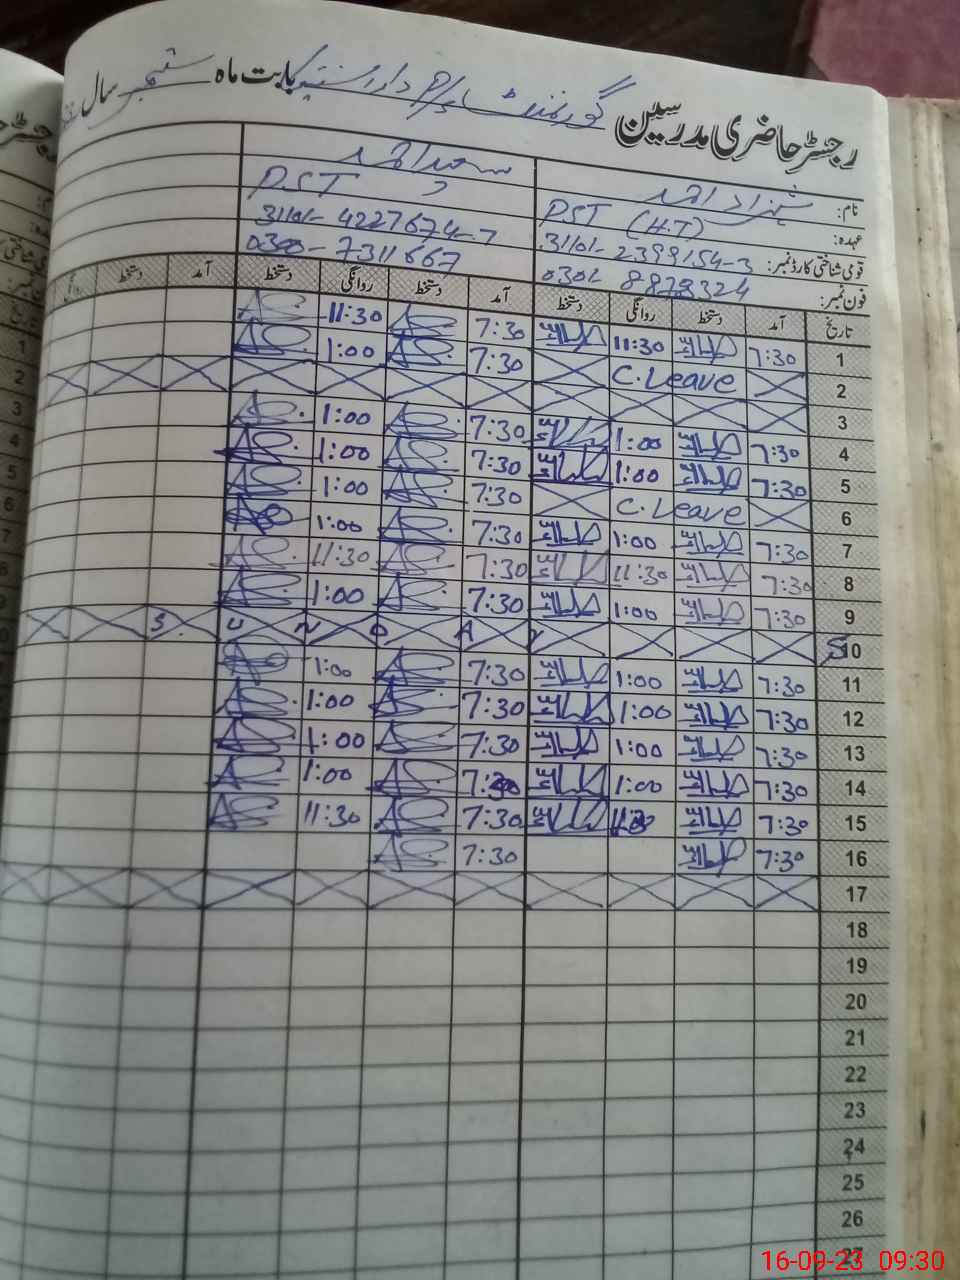 رجسٹر حاضری مدرسین گورنمنٹ P/S بابت ماہ ستمبر سال
نام: شہزاد احمد سعید احمد
عہدہ: PST (H.T) PST
قومی شناختی کارڈ نمبر: 31101-2399154-3 31101-4227674-7
فون نمبر: 0301-8878324 0300-7311667
تاریخ آمد دستخط روانگی دستخط آمد دستخط روانگی دستخط آمد دستخط روانگی
1 7:30 11:30 7:30 11:30
2 C. Leave 7:30 1:00
3
4 7:30 1:00 7:30 1:00
5 7:30 1:00 7:30 1:00
6 C. Leave 7:30 1:00
7 7:30 1:00 7:30 1:00
8 7:30 11:30 7:30 11:30
9 7:30 1:00 7:30 1:00
10 S U N D A Y S
11 7:30 1:00 7:30 1:00
12 7:30 1:00 7:30 1:00
13 7:30 1:00 7:30 1:00
14 7:30 1:00 7:30 1:00
15 7:30 7:30 11:30
16 7:30 7:30
17
18
19
20
21
22
23
24
25
26
27
16-09-23 09:30